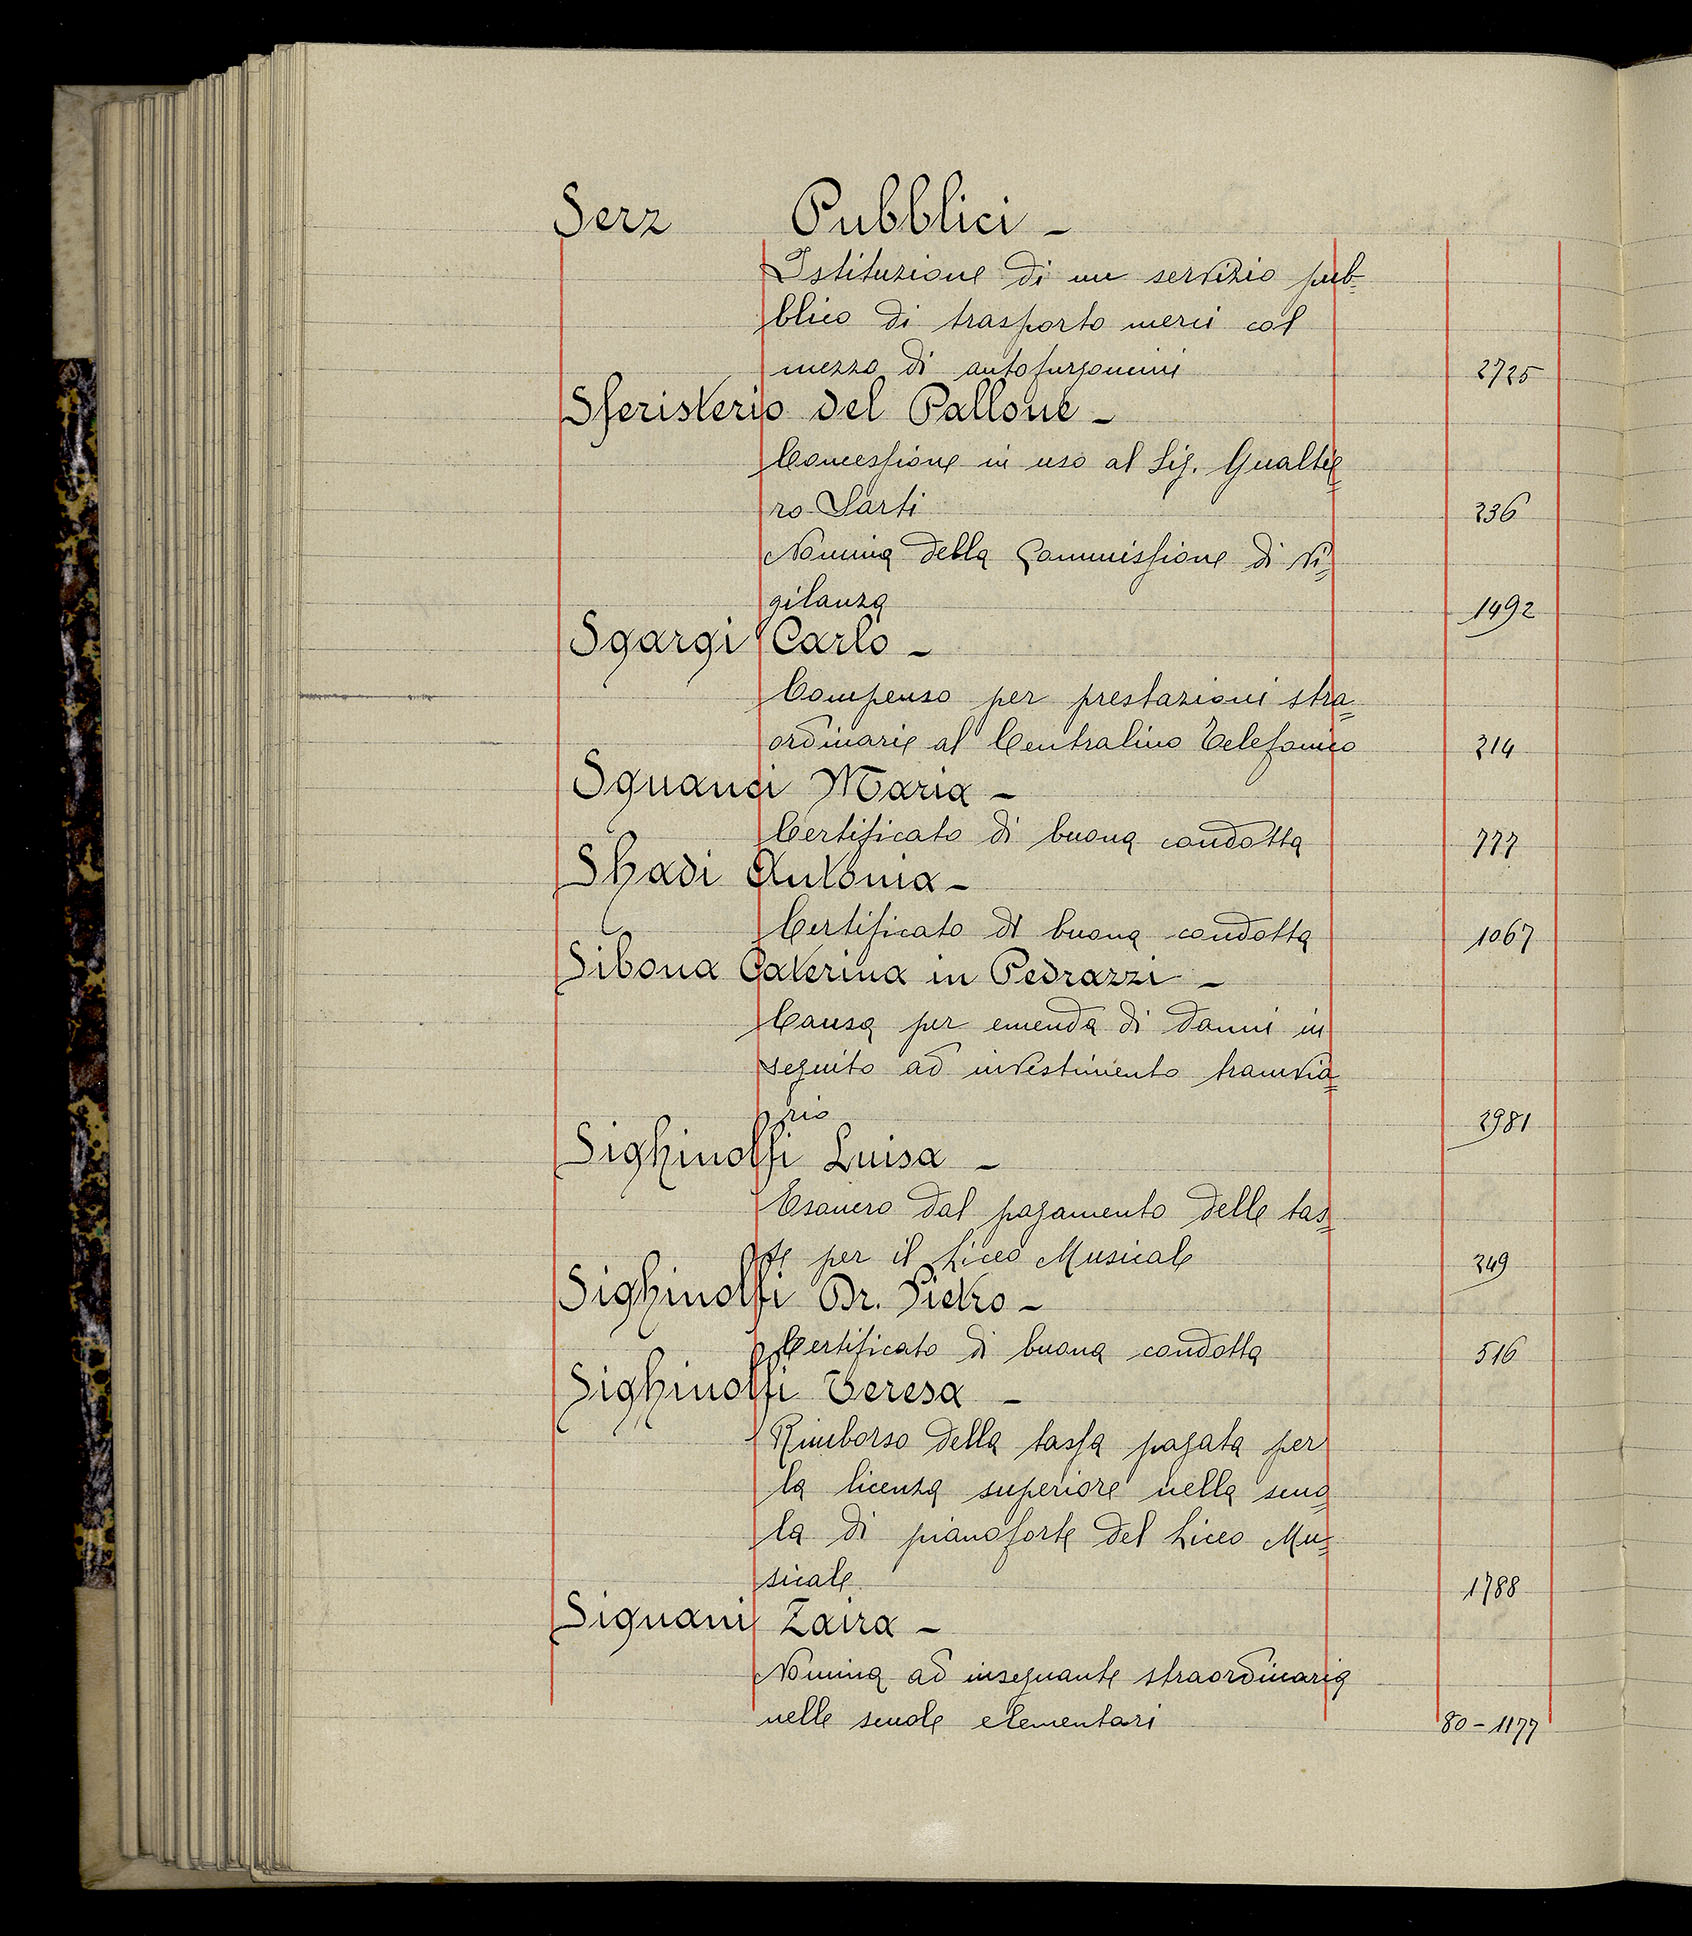 Serz Pubblici -
Istituzione di un servizio pub-
blico di trasporto merci col
mezzo di autofurgoncini 2725
Sferisterio del Pallone -
Concessione in uso al Sig. Gualtie=
ro Sarti 236
Nomina della Commissione di Vi=
gilanza 1492
Sgargi Carlo -
Compenso per prestazioni stra=
ordinarie al Centralino Telefonico 214
Sguanci Maria -
Certificato di buona condotta 777
Shadi Antonia -
Certificato di buona condotta 1067
Sibona Caterina in Pedrazzi -
Causa per emenda di danni in
seguito ad investimento tramvia=
rio 2981
Sighinolfi Luisa -
Esonero dal pagamento delle tas=
se per il Liceo Musicale 249
Sighinolfi Dr. Pietro -
Certificato di buona condotta 516
Sighinolfi Teresa -
Rimborso della tassa pagata per
la licenza superiore nella scuo
la di pianoforte del Liceo Mu=
sicale 1788
Signani Zaira -
Nomina ad insegnante straordinaria
nelle scuole elementari 80 - 1177